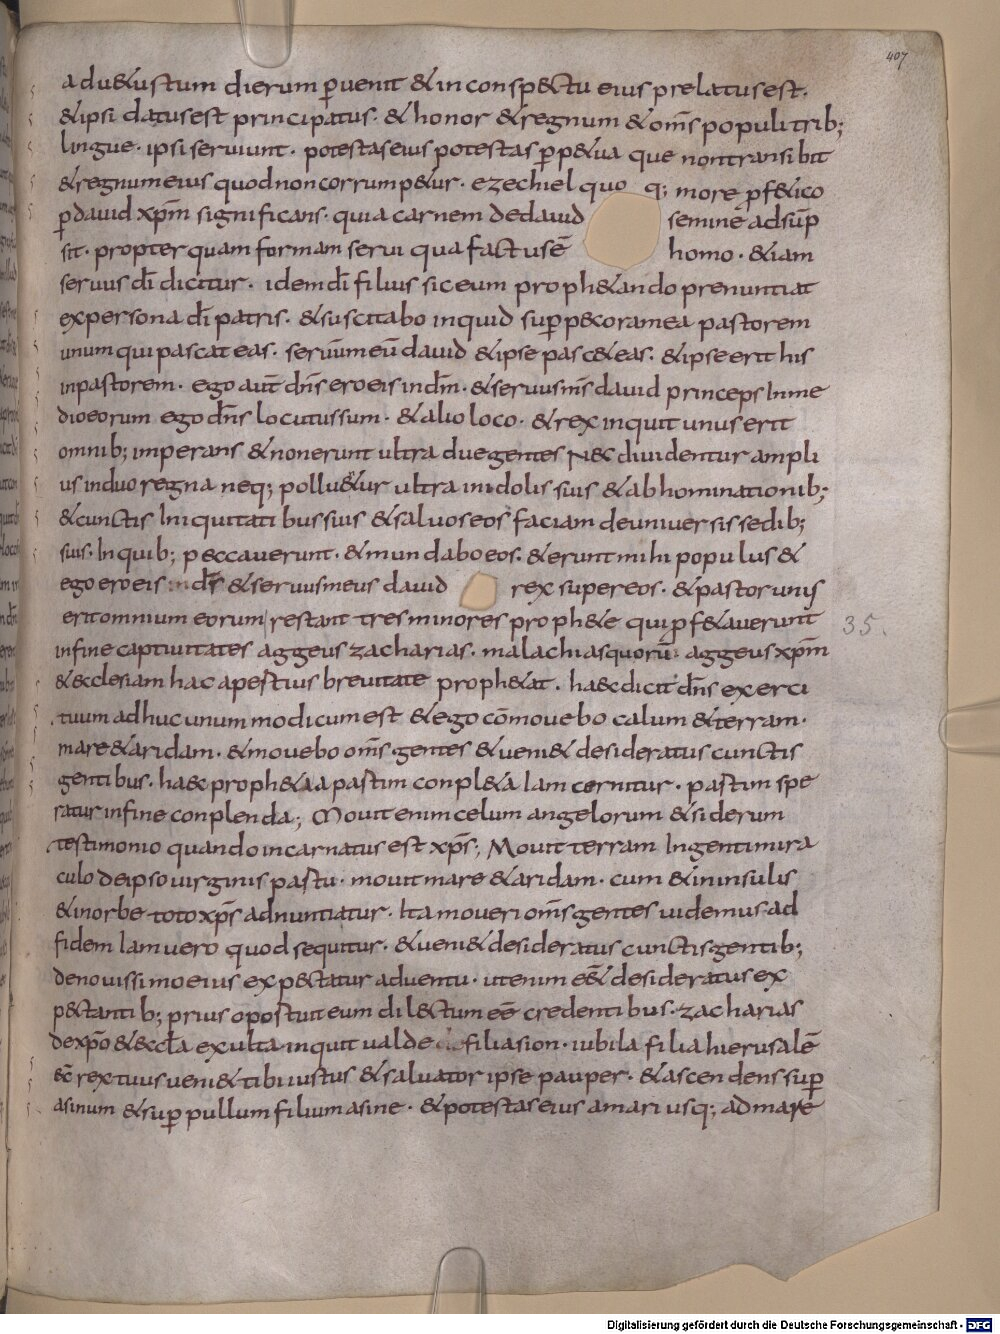 407
ad u&ustum dierum ꝑuenit & in conspectu eius prelatus est.
& ipsi datus est principatus. & honor & regnum & om̄s populi trib;
lingue. ipsi seruiunt. potestas eius potestas ꝑp&ua que non transibit
& regnum eius quod non corrump&ur. ezechiel quo q; more ꝓf&ico
ꝑ dauid xp̄m significans. quia carnem de dauid semine adsūp
sit. propter quam formam serui qua factus ē homo. & iam
seruus dī dicitur. idem dī filius sic eum proph&ando prenuntiat
ex persona dī patris. & suscitabo inquid suꝑ pecora mea pastorem
unum qui pascat eas. seruūm eū dauid & ipse pasc& eas. & ipse erit his
in pastorem. ego aūt dn̄s ero eis in dm̄. & seruus m̄s dauid princeps in me
dio eorum ego dn̄s locutus sum. & alio loco. & rex inquit unus erit
omnib; imperans & non erunt ultra due gentes Nec diuidentur ampli
us in duo regna neq; pollu&ur ultra in idolis suis & abhominationib;
& cunctis iniquitatibus suis & saluos eos faciam de uniuersis sedib;
suis. In quib; peccauerunt. & mundabo eos. & erunt mihi populus &
ego ero eis in ds̄ & seruus meus dauid rex super eos. & pastor unus
erit omnium eorum restant tres minores proph&e qui ꝓf&auerunt
35.
in fine captiuitates aggeus zacharias. malachias quorū. aggeus xp̄m
& ecclesiam hac apestius breuitate proph&at. haec dicit dn̄s exerci
tuum adhuc unum modicum est & ego cōmouebo calum & terram.
mare & aridam. & mouebo om̄s gentes & ueni& desideratus cunctis
gentibus. haec proph&ia a pastim conpl&a Iam cernitur. pastim spe
ratur in fine conplenda; Mouit enim celum angelorum & siderum
testimonio quando incarnatus est xp̄s; Mouit terram Ingenti mira
culo de ipso uirginis pastu. mouit mare & aridam. cum & in insulis
& in orbe toto xp̄s adnuntiatur. Ita moueri om̄s gentes uidemus ad
fidem Iam uero quod sequitur. & ueni& desideratus cunctis gentib;
de nouissimo eius exp&tatur aduentu. ut enim eē& desideratus ex
p&tantib; prius opostuit eum dilectum eē credentibus. zacharias
de xp̄o & eccl̄a exulta inquit ualde filia sion. iubila filia hierusalē
ec̄ rex tuus ueni& tibi iustus & saluator ipse pauper. & ascendens suꝑ
asinum & suꝑ pullum filium asine. & potestas eius a mari usq; ad mare
Digitalisierung gefördert durch die Deutsche Forschungsgemeinschaft - DFG